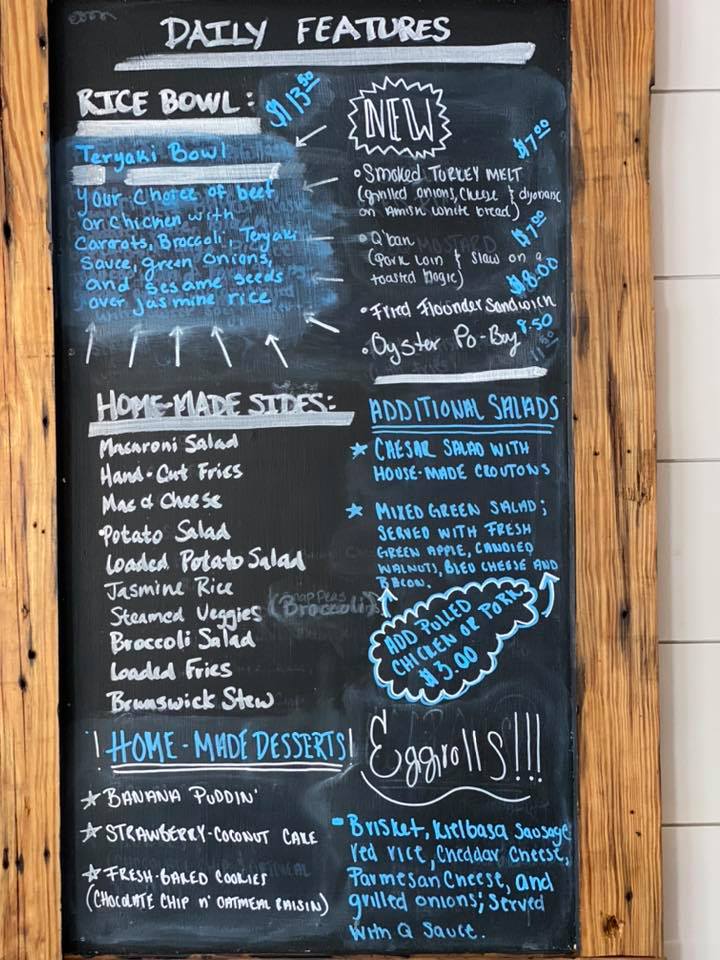 DAILY FEATURES
RICE BOWL: $13.50
Teryaki Bowl
your choice of beef
or chicken with
Carrots, Broccoli, Teryaki
Sauce, green onions,
and sesame seeds
over jasmine rice
NEW
$7.00
• Smoked TURKEY MELT
(grilled onions, cheese & dijonaise
on Amish white bread)
$7.00
• Q'ban
(pork loin & slaw on a
toasted hogie)
$8.00
• Fried Flounder Sandwich
8.50
• Oyster Po-Boy
HOME-MADE SIDES:
Macaroni Salad
Hand-Cut Fries
Mac & Cheese
Potato Salad
Loaded Potato Salad
Jasmine Rice
Steamed Veggies (Broccoli)
Broccoli Salad
Loaded Fries
Brunswick Stew
ADDITIONAL SALADS
CAESAR SALAD WITH
HOUSE-MADE CROUTONS
MIXED GREEN SALAD;
SERVED WITH FRESH
GREEN APPLE, CANDIED
WALNUTS, BLEU CHEESE AND
BACON.
ADD PULLED
CHICKEN OR PORK
$3.00
! HOME-MADE DESSERTS!
BANANA PUDDIN'
STRAWBERRY-COCONUT CAKE
FRESH-BAKED COOKIES
(CHOCOLATE CHIP N' OATMEAL RAISIN)
Eggrolls!!!
- Brisket, Kielbasa Sausage
red rice, Cheddar Cheese,
Parmesan Cheese, and
grilled onions; served
with Q Sauce.